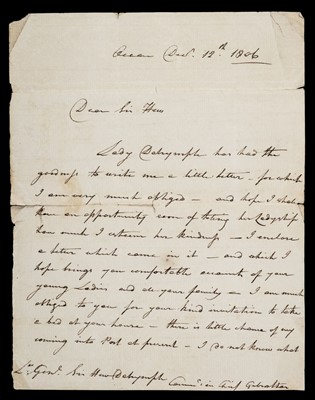 Ocean Decr. 12th. 1806
Dear Sir Hew
Lady Dalrymple has had the
goodness to write me a little letter - for which
I am very much obliged - and hope I shall
have an opportunity soon of telling her Ladyship
how much I esteem her kindness - I enclose
a letter which came in it - and which I
hope brings you comfortable accounts of your
young Ladies and all your family - I am much
obliged to you for your kind invitation to take
a bed at your house - there is little chance of my
coming into Port at present - I do not know what
Lt. Genl. Sir Hew Dalrymple
Comm. in Chief Gibraltar